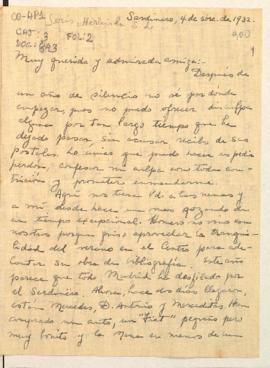 CO-4P1
CAJ: 3 FOL: 2
DOC: 893
Sardinero, 4 de sbre. de 1932.
1
Muy querida y admirada amiga:-
Después de
un año de silencio no sé por donde
empezar, pues no puedo ofrecer disculpa
alguna por tan largo tiempo que he
dejado pasar sin acusar recibo de sus
postales. Lo único que puedo hacer es pedir
perdón, confesar mi culpa con toda con-
trición y prometer enmendarme.
Aquí nos tiene Vd. a las nenas y
a mí desde hace gozando de
un tiempo excepcional. Homero no vino con
nosotras porque quiso aprovechar la tranqui-
lidad del verano en el Centro para ade-
lantar su obra de bibliografía. Este año
parece que todo Madrid ha desfilado por
el Sardinero. Ahora, hace dos días llegaron,
están Mercedes, D. Antonio y Merceditas. Han
comprado un auto, un "Fiat" pequeño pero
muy bonito y la Mera en menos de un